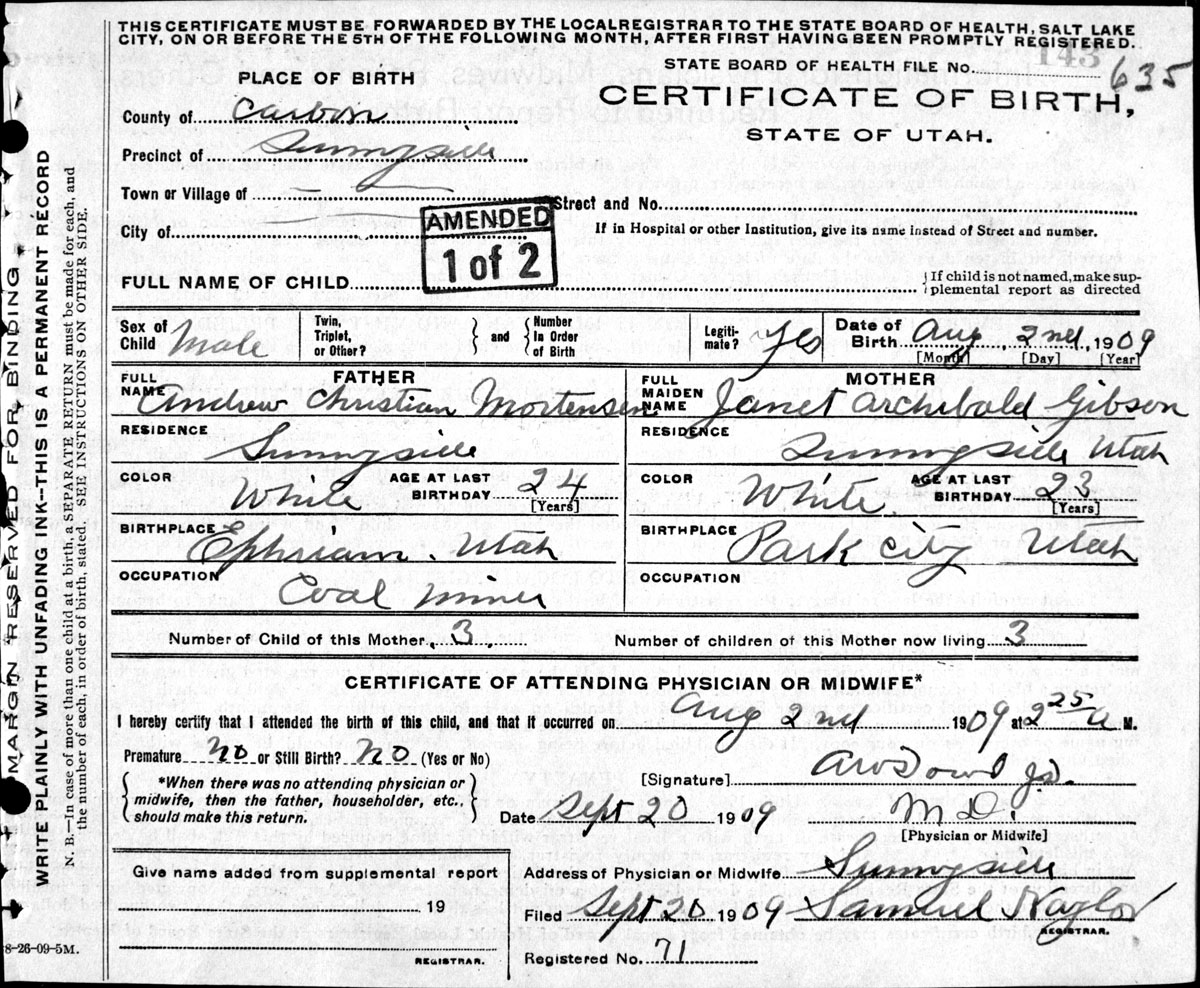 THIS CERTIFICATE MUST BE FORWARDED BY THE LOCAL REGISTRAR TO THE STATE BOARD OF HEALTH, SALT LAKE
CITY, ON OR BEFORE THE 5TH OF THE FOLLOWING MONTH, AFTER FIRST HAVING BEEN PROMPTLY REGISTERED.
PLACE OF BIRTH
STATE BOARD OF HEALTH FILE No. 143 635
CERTIFICATE OF BIRTH,
STATE OF UTAH.
County of Carbon
Precinct of Sunnyside
Town or Village of
Street and No.
City of
If in Hospital or other Institution, give its name instead of Street and number.
AMENDED
1 of 2
FULL NAME OF CHILD
If child is not named, make sup-
plemental report as directed
Sex of Child Male
Twin, Triplet, or Other? and Number In Order of Birth
Legiti-mate? Yes
Date of Birth Aug 2nd, 1909
[Month] [Day] [Year]
FATHER
FULL NAME Andrew Christian Mortensen
RESIDENCE Sunnyside
COLOR White AGE AT LAST BIRTHDAY 24 [Years]
BIRTHPLACE Ephriam. Utah
OCCUPATION Coal miner
MOTHER
FULL MAIDEN NAME Janet Archibald Gibson
RESIDENCE Sunnyside Utah
COLOR White AGE AT LAST BIRTHDAY 23 [Years]
BIRTHPLACE Park City Utah
OCCUPATION
Number of Child of this Mother 3 Number of children of this Mother now living 3
CERTIFICATE OF ATTENDING PHYSICIAN OR MIDWIFE*
I hereby certify that I attended the birth of this child, and that it occurred on Aug 2nd 1909 at 2 25 a M.
Premature No or Still Birth? No (Yes or No)
*When there was no attending physician or
midwife, then the father, householder, etc.,
should make this return.
[Signature]
Date Sept 20 1909 M D.
[Physician or Midwife]
Give name added from supplemental report
19
REGISTRAR.
Address of Physician or Midwife Sunnyside
Filed Sept 20 1909 Samuel Naylor
REGISTRAR.
Registered No. 71
8-26-09-5M.
MARGIN RESERVED FOR BINDING
WRITE PLAINLY WITH UNFADING INK--THIS IS A PERMANENT RECORD
N. B.—In case of more than one child at a birth, SEPARATE RETURN must be made for each, and
the number of each, in order of birth, stated. SEE INSTRUCTIONS ON OTHER SIDE.